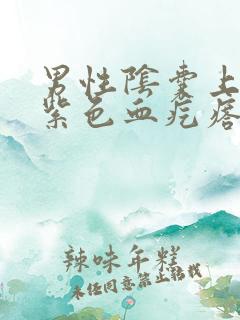 男性陰囊上
紫色血疙瘩
辣味年糕
未經同意禁止轉載